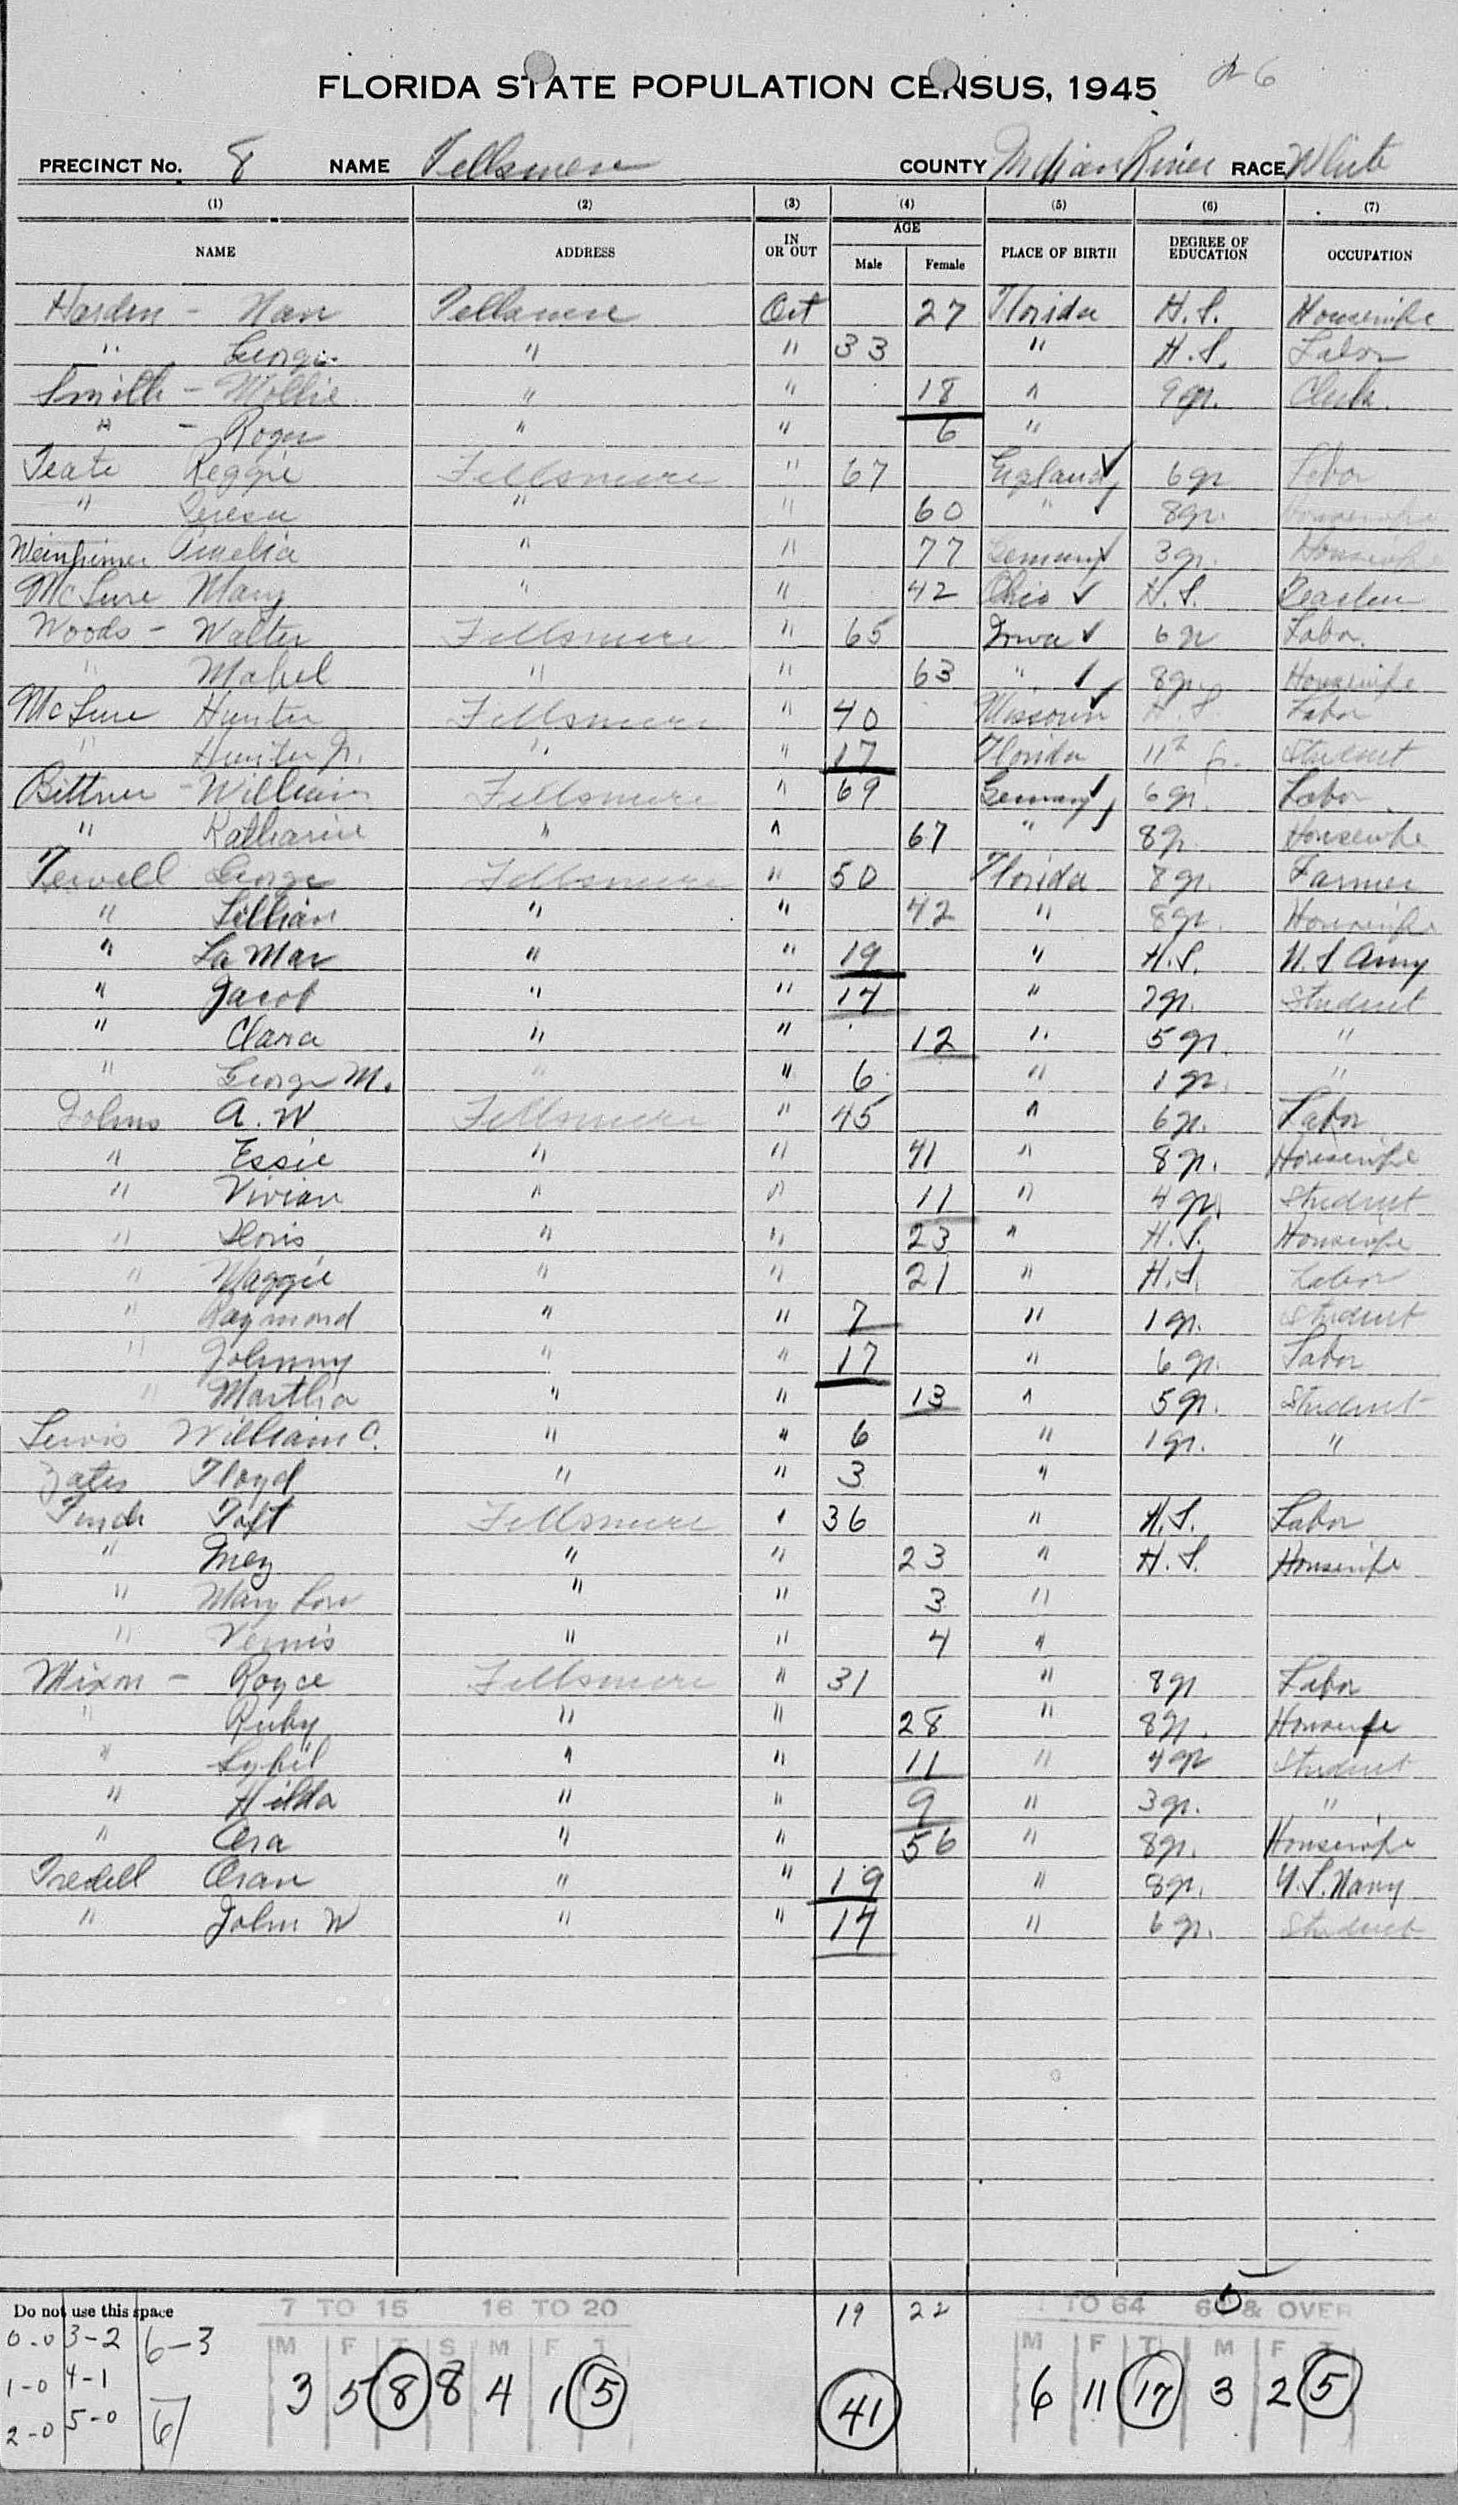 № 6
FLORIDA STATE POPULATION CENSUS, 1945
PRECINCT No. 8 NAME Fellsmere COUNTY Indian River RACE White
(1) (2) (3) (4) (5) (6) (7)
NAME ADDRESS IN OR OUT AGE Male Female PLACE OF BIRTH DEGREE OF EDUCATION OCCUPATION
Harden - Nan Fellsmere Out 27 Florida H.S. Housewife
" George " " 33 " H.S. Labor
Smith - Mollie " " 18 " 9 gr. Clerk.
" - Roger " " 6 "
Teate Reggie Fellsmere " 67 England ✓ 6 gr Labor
" Teresa " " 60 " 8 gr. Housewife
Weinheimer Amelia " " 77 Germany ✓ 3 gr. Housewife
McLure Mary " " 42 Ohio ✓ H.S. Teacher
Woods - Walter Fellsmere " 65 Iowa ✓ 6 gr Labor.
" Mabel " " 63 " ✓ 8 gr. Housewife
McLure Hunter Fellsmere " 40 Missouri ✓ H.S. Labor
" Hunter Jr. " " 17 Florida 11 gr. Student
Bittner - William Fellsmere " 69 Germany ✓ 6 gr. Labor.
" Katharine " " 67 " 8 gr. Housewife
Tewell George Fellsmere " 50 Florida 8 gr. Farmer
" Lillian " " 42 " 8 gr. Housewife
" La Mar " " 19 " H.S. U.S Army
" Jacob " " 14 " 7 gr. Student
" Clara " " 12 " 5 gr. "
" George M. " " 6 " 1 gr. "
Johns A. W Fellsmere " 45 " 6 gr. Labor
" Essie " " 41 " 8 gr. Housewife
" Vivian " " 11 " 4 gr. Student
" Doris " " 23 " H.S. Housewife
" Maggie " " 21 " H.S. Labor
" Raymond " " 7 " 1 gr. Student
" Johnny " " 17 " 6 gr. Labor
" Martha " " 13 " 5 gr. Student
Lewis William C. " " 6 " 1 gr. "
Yates Floyd " " 3 "
Finch Taft Fellsmere " 36 " H.S. Labor
" Iney " " 23 " H.S. Housewife
" Mary Lou " " 3 "
" Vernis " " 4 "
Mixon - Royce Fellsmere " 31 " 8 gr Labor
" Ruby " " 28 " 8 gr. Housewife
" Sybil " " 11 " 4 gr Student
" Hilda " " 9 " 3 gr. "
" Ora " " 56 " 8 gr. Housewife
Tredell Oran " " 19 " 8 gr. U.S. Navy
" John W " " 14 " 6 gr. Student
Do not use this space 7 TO 15 16 TO 20 19 22 TO 64 65 & OVER
M F T S M F T M F T M F T
0-0 3-2 6-3
1-0 4-1
2-0 5-0 6
3 5 8 8 4 1 5 41 6 11 17 3 2 5